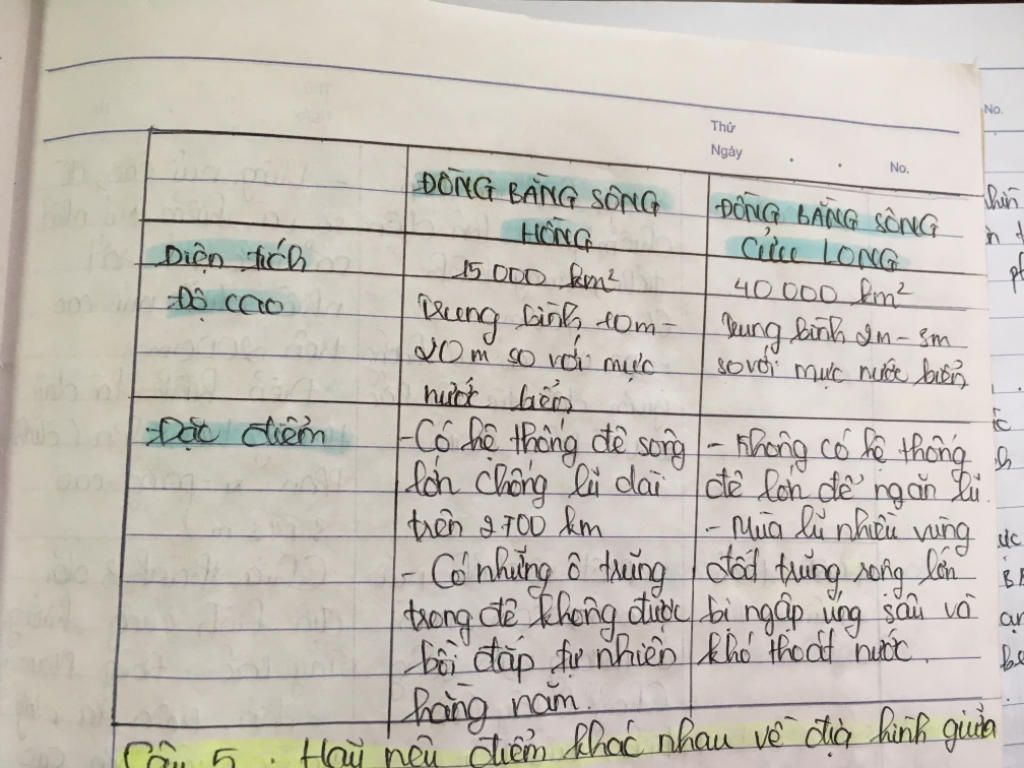 Thứ
Ngày . . No.
No.
ĐỒNG BẰNG SÔNG
HỒNG
ĐỒNG BẰNG SÔNG
CỬU LONG
Diện tích
15 000 km²
40 000 km²
Độ cao
Trung bình 10m-
20m so với mực
nước biển
Trung bình 2m-3m
so với mực nước biển
Đặc điểm
-Có hệ thống đê sông
lớn chống lũ dài
trên 2700 km
- Có những ô trũng
trong đê không được
bồi đắp tự nhiên
hằng năm.
- Không có hệ thống
đê lớn để ngăn lũ.
- Mùa lũ nhiều vùng
đất trũng rộng lớn
bị ngập úng sâu và
khó thoát nước.
Câu 5. Hãy nêu điểm khác nhau về địa hình giữa